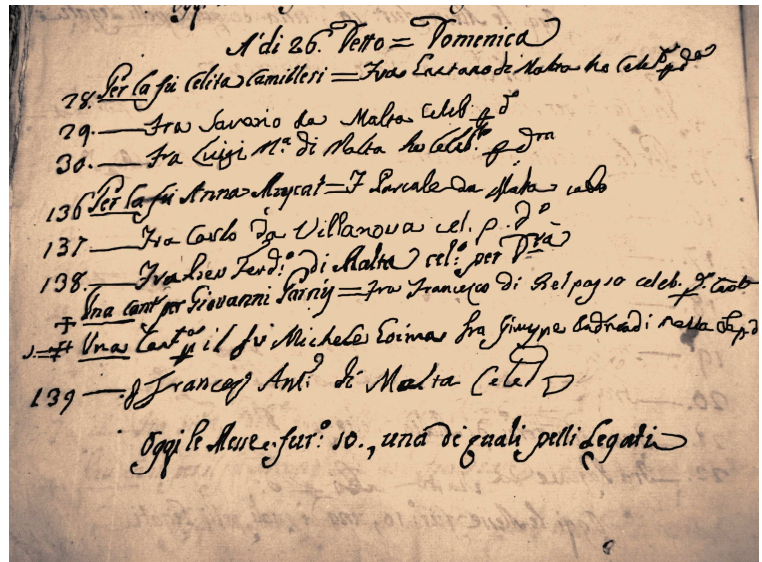 A' di 26. Detto = Domenica
28. Per la fu Celita Camilleri = Fra Gaetano di Malta ho Celeb. p dª
29. — Fra Saverio da Malta Celeb. p dº
30. — Fra Luigi Mª di Malta ho Celeb. p dra
136 Per la fu Anna Muscat = F Pascale da Malta
137 — Fra Carlo da Villanova cel. p. dº
138. — Fra Ferd.º di Malta cel.º per dra
Una Cant per Giovanni = Fra Francesco di Belpasso celeb. p. dº
Una Cantª p il fu Michele Fra Giuseppe di Malta
139 — F Francesº Ant.º di Malta Celeb
Oggi le Messe fur.º 10., una di quali pelli Legati